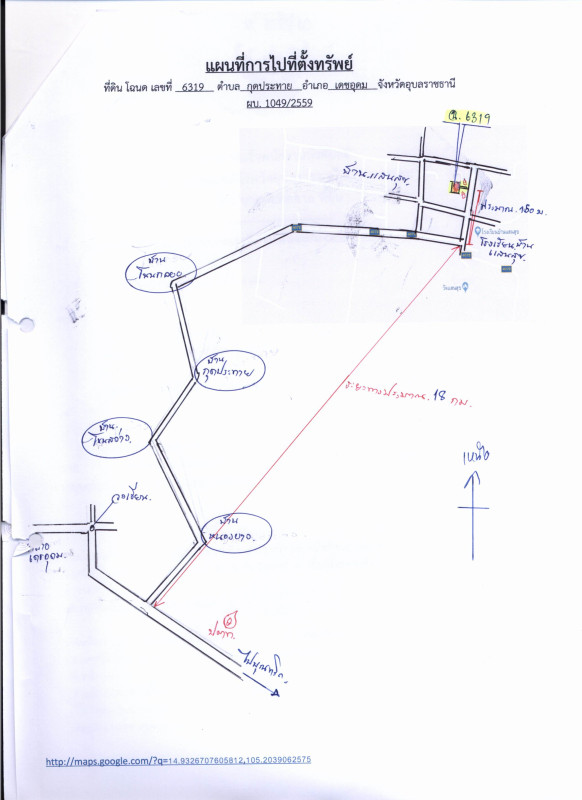 แผนที่การไปที่ตั้งทรัพย์
ที่ดิน โฉนด เลขที่ 6319 ตำบล กุดประทาย อำเภอ เดชอุดม จังหวัดอุบลราชธานี
ผบ. 1049/2559
ฉ. 6319
บ้านแสนสุข
ประมาณ 150 ม.
โรงเรียนบ้านแสนสุข
โรงเรียนบ้าน
แสนสุข
วัดแสนสุข
บ้าน
โนนกลอย
บ้าน
กุดประทาย
ระยะทางประมาณ 18 กม.
บ้าน
โนนสว่าง
เหนือ
วงเวียน
บ้าน
หนองยาว
เดชอุดม
ปตท.
ไปบุณฑริก
http://maps.google.com/?q=14.9326707605812,105.2039062575